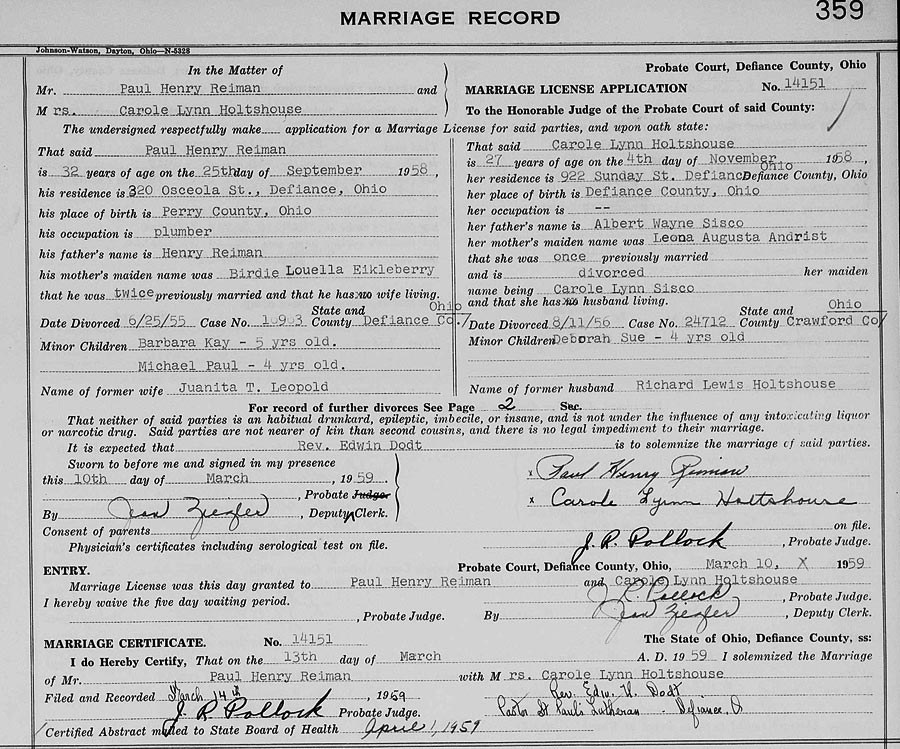 MARRIAGE RECORD
359
Johnson-Watson, Dayton, Ohio—N-5328
In the Matter of
Mr. Paul Henry Reiman and
Mrs. Carole Lynn Holtshouse
Probate Court, Defiance County, Ohio
MARRIAGE LICENSE APPLICATION No. 14151
To the Honorable Judge of the Probate Court of said County:
The undersigned respectfully make application for a Marriage License for said parties, and upon oath state:
That said Paul Henry Reiman
is 32 years of age on the 25th day of September 1958,
his residence is 320 Osceola St., Defiance, Ohio
his place of birth is Perry County, Ohio
his occupation is plumber
his father's name is Henry Reiman
his mother's maiden name was Birdie Louella Eikleberry
that he was twice previously married and that he has no wife living.
Date Divorced 6/25/55 Case No. 10903 State and County Defiance Co./Ohio
Minor Children Barbara Kay - 5 yrs old.
Michael Paul - 4 yrs old.
Name of former wife Juanita T. Leopold
That said Carole Lynn Holtshouse
is 27 years of age on the 4th day of November 1958,
her residence is 922 Sunday St. Defiance Ohio Defiance County, Ohio
her place of birth is Defiance County, Ohio
her occupation is --
her father's name is Albert Wayne Sisco
her mother's maiden name was Leona Augusta Andrist
that she was once previously married
and is divorced her maiden
name being Carole Lynn Sisco
and that she has no husband living.
Date Divorced 8/11/56 Case No. 24712 State and County Crawford Co/Ohio
Minor Children Deborah Sue - 4 yrs old
Name of former husband Richard Lewis Holtshouse
For record of further divorces See Page 2 Sec.
That neither of said parties is an habitual drunkard, epileptic, imbecile, or insane, and is not under the influence of any intoxicating liquor
or narcotic drug. Said parties are not nearer of kin than second cousins, and there is no legal impediment to their marriage.
It is expected that Rev. Edwin Dodt is to solemnize the marriage of said parties.
Sworn to before me and signed in my presence
this 10th day of March, 1959
, Probate Judge.
By Jean Ziegler, Deputy Clerk.
x Paul Henry Reiman
x Carole Lynn Holtshouse
Consent of parents on file.
Physician's certificates including serological test on file.
J. R. Pollock, Probate Judge.
ENTRY.
Probate Court, Defiance County, Ohio, March 10, X 1959
Marriage License was this day granted to Paul Henry Reiman and Carole Lynn Holtshouse
I hereby waive the five day waiting period.
J R Pollock, Probate Judge.
, Probate Judge. By Jean Ziegler, Deputy Clerk.
MARRIAGE CERTIFICATE. No. 14151
The State of Ohio, Defiance County, ss:
I do Hereby Certify, That on the 13th day of March A. D. 1959 I solemnized the Marriage
of Mr. Paul Henry Reiman with Mrs. Carole Lynn Holtshouse
Filed and Recorded March 14th, 1959
Rev. Edw. H. Dodt
J. R. Pollock Probate Judge.
Pastor St Pauls Lutheran - Defiance, O
Certified Abstract mailed to State Board of Health April 1, 1959